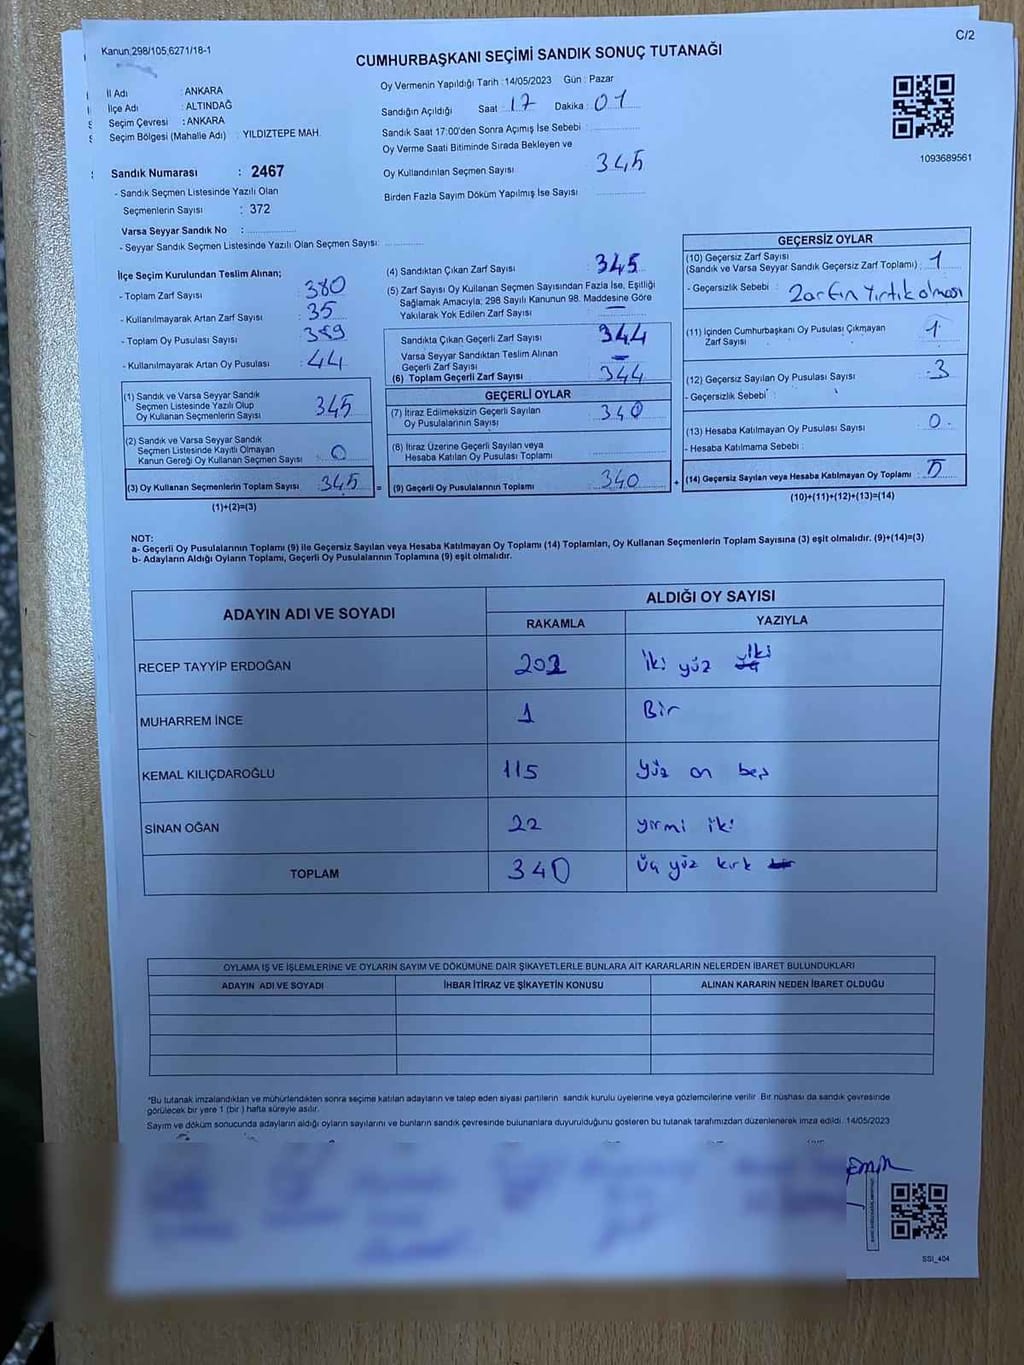 Kanun,298/105,6271/18-1
C/2
CUMHURBAŞKANI SEÇİMİ SANDIK SONUÇ TUTANAĞI
İl Adı : ANKARA
İlçe Adı : ALTINDAĞ
Seçim Çevresi : ANKARA
Seçim Bölgesi (Mahalle Adı) YILDIZTEPE MAH.
Sandık Numarası : 2467
- Sandık Seçmen Listesinde Yazılı Olan
Seçmenlerin Sayısı : 372
Varsa Seyyar Sandık No :
- Seyyar Sandık Seçmen Listesinde Yazılı Olan Seçmen Sayısı:
Oy Vermenin Yapıldığı Tarih : 14/05/2023 Gün : Pazar
Sandığın Açıldığı Saat : 17 Dakika : 01
Sandık Saat 17:00'den Sonra Açımış İse Sebebi :
Oy Verme Saati Bitiminde Sırada Bekleyen ve
Oy Kullandırılan Seçmen Sayısı 345
Birden Fazla Sayım Döküm Yapılmış İse Sayısı
1093689561
İlçe Seçim Kurulundan Teslim Alınan;
- Toplam Zarf Sayısı : 380
- Kullanılmayarak Artan Zarf Sayısı : 35
- Toplam Oy Pusulası Sayısı : 389
- Kullanılmayarak Artan Oy Pusulası : 44
(1) Sandık ve Varsa Seyyar Sandık
Seçmen Listesinde Yazılı Olup
Oy Kullanan Seçmenlerin Sayısı 345
(2) Sandık ve Varsa Seyyar Sandık
Seçmen Listesinde Kayıtlı Olmayan
Kanun Gereği Oy Kullanan Seçmen Sayısı 0
(3) Oy Kullanan Seçmenlerin Toplam Sayısı 345 =
(1)+(2)=(3)
(4) Sandıktan Çıkan Zarf Sayısı 345
(5) Zarf Sayısı Oy Kullanan Seçmen Sayısından Fazla İse, Eşitliği
Sağlamak Amacıyla; 298 Sayılı Kanunun 98. Maddesine Göre
Yakılarak Yok Edilen Zarf Sayısı
Sandıkta Çıkan Geçerli Zarf Sayısı 344
Varsa Seyyar Sandıktan Teslim Alınan
Geçerli Zarf Sayısı
(6) Toplam Geçerli Zarf Sayısı 344
GEÇERLİ OYLAR
(7) İtiraz Edilmeksizin Geçerli Sayılan
Oy Pusulalarının Sayısı 340
(8) İtiraz Üzerine Geçerli Sayılan veya
Hesaba Katılan Oy Pusulası Toplamı
(9) Geçerli Oy Pusulalarının Toplamı 340 +
GEÇERSİZ OYLAR
(10) Geçersiz Zarf Sayısı
(Sandık ve Varsa Seyyar Sandık Geçersiz Zarf Toplamı) : 1
- Geçersizlik Sebebi : Zarfın Yırtık olması
(11) İçinden Cumhurbaşkanı Oy Pusulası Çıkmayan
Zarf Sayısı 1
(12) Geçersiz Sayılan Oy Pusulası Sayısı 3
- Geçersizlik Sebebi :
(13) Hesaba Katılmayan Oy Pusulası Sayısı 0
- Hesaba Katılmama Sebebi :
(14) Geçersiz Sayılan veya Hesaba Katılmayan Oy Toplamı 5
(10)+(11)+(12)+(13)=(14)
NOT:
a- Geçerli Oy Pusulalarının Toplamı (9) ile Geçersiz Sayılan veya Hesaba Katılmayan Oy Toplamı (14) Toplamları, Oy Kullanan Seçmenlerin Toplam Sayısına (3) eşit olmalıdır. (9)+(14)=(3)
b- Adayların Aldığı Oyların Toplamı, Geçerli Oy Pusulalarının Toplamına (9) eşit olmalıdır.
ADAYIN ADI VE SOYADI ALDIĞI OY SAYISI
RAKAMLA YAZIYLA
RECEP TAYYİP ERDOĞAN 202 İki yüz iki
MUHARREM İNCE 1 Bir
KEMAL KILIÇDAROĞLU 115 Yüz on beş
SİNAN OĞAN 22 yirmi iki
TOPLAM 340 Üç yüz kırk
OYLAMA İŞ VE İŞLEMLERİNE VE OYLARIN SAYIM VE DÖKÜMÜNE DAİR ŞİKAYETLERLE BUNLARA AİT KARARLARIN NELERDEN İBARET BULUNDUKLARI
ADAYIN ADI VE SOYADI İHBAR İTİRAZ VE ŞİKAYETİN KONUSU ALINAN KARARIN NEDEN İBARET OLDUĞU
*Bu tutanak imzalandıktan ve mühürlendikten sonra seçime katılan adayların ve talep eden siyasi partilerin sandık kurulu üyelerine veya gözlemcilerine verilir. Bir nüshası da sandık çevresinde
görülecek bir yere 1 (bir ) hafta süreyle asılır.
Sayım ve döküm sonucunda adayların aldığı oyların sayılarını ve bunların sandık çevresinde bulunanlara duyurulduğunu gösteren bu tutanak tarafımızdan düzenlenerek imza edildi. 14/05/2023
SSİ_404